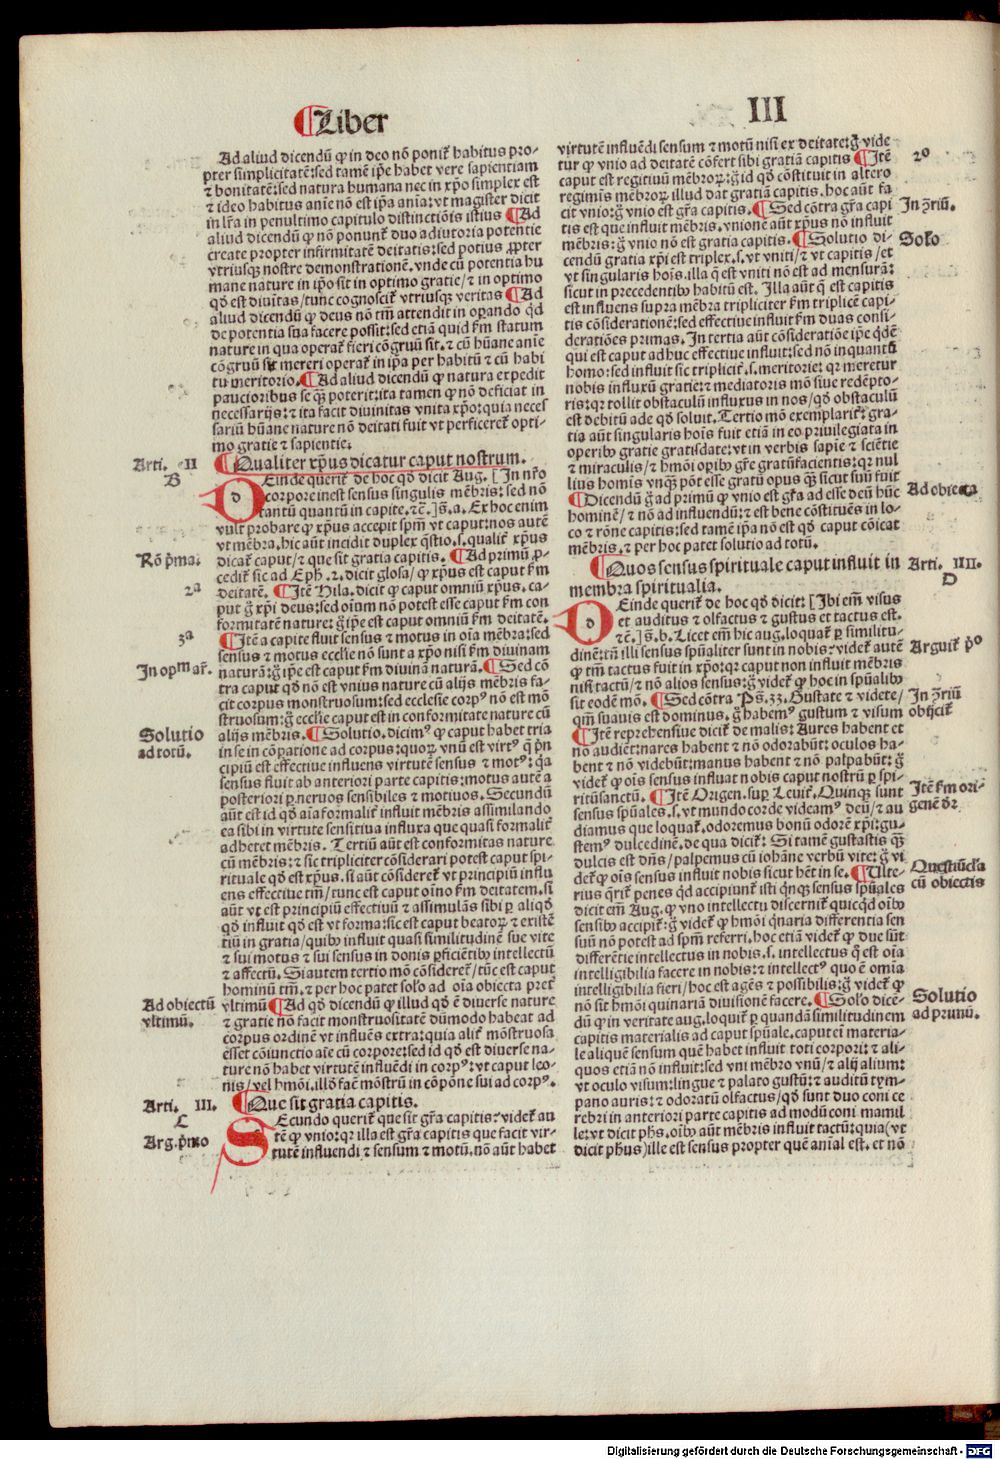 ¶Liber
III
Ad aliud dicendũ ꝙ in deo nõ ponit̃ habitus pro-
pter simplicitatẽ: sed tamẽ ip̃e habet vere sapientiam
⁊ bonitatẽ: sed natura humana nec in xp̃o simplex est
⁊ ideo habitus anĩe nõ est ip̃a anĩa: vt magister dicit
in lr̃a in penultimo capitulo distinctiõis istius ¶Ad
aliud dicendũ ꝙ nõ ponunt̃ duo adiutoria potentie
create propter infirmitatẽ deitatis: sed potius ꝓpter
vtriusqꝫ nostre demonstrationẽ. vnde cũ potentia hu
mane nature in ip̃o sit in optimo gratie/ ⁊ in optimo
qd̃ est diuĩtas/ tunc cognoscit̃ vtriusqꝫ veritas ¶Ad
aliud dicendũ ꝙ deus nõ tm̃ attendit in oꝑando qd̃
de potentia sua facere possit: sed etiã quid ẜm statum
nature in qua operat̃ fieri cõgruũ sit. ⁊ cũ hũane anĩe
cõgruũ sit mereri operat̃ in ip̃a per habitũ ⁊ cũ habi
tu meritorio. ¶Ad aliud dicendũ ꝙ natura expedit
paucioribus se qꝫ poterit: ita tamen ꝙ nõ deficiat in
necessarijs: ⁊ ita facit diuinitas vnita xp̃o: quia neces
sariũ hũane nature nõ deitati fuit vt perficeret̃ opti-
mo gratie ⁊ sapientie.
Arti. II
B
¶Qualiter xp̃us dicatur caput nostrum.
Deinde querit̃ de hoc qd̃ dicit Aug. [In nr̃o
corpore inest sensus singulis mẽbris: sed nõ
tantũ quantũ in capite. ⁊c̃.] §.a. Ex hoc enim
vult probare ꝙ xp̃us accepit spm̃ vt caput: nos autẽ
vt mẽbra. hic aũt incidit duplex q̃stio. s. qualit̃ xp̃us
Rõ p̃ma.
dicat̃ caput/ ⁊ que sit gratia capitis. ¶Ad primũ ꝓ-
cedit̃ sic ad Eph̃.2. dicit glosa/ ꝙ xp̃us est caput ẜm
2ª
deitatẽ. ¶Itẽ Hila. dicit ꝙ caput omniũ xp̃us. ca-
put g̃ xp̃i deus: sed oĩum nõ potest esse caput ẜm con
formitatẽ nature: g̃ ip̃e est caput omniũ ẜm deitatẽ.
3ª
¶Itẽ a capite fluit sensus ⁊ motus in oĩa mẽbra: sed
sensus ⁊ motus ecclie nõ sunt a xp̃o nisi ẜm diuinam
In opᵐ ar̃.
naturã: g̃ ip̃e est caput ẜm diuinã naturã. ¶Sed cõ
tra caput qd̃ nõ est vnius nature cũ alijs mẽbris fa-
cit corpus monstruosum: sed ecclesie corpꝰ nõ est mõ
struosum: g̃ ecclie caput est in conformitate nature cũ
Solutio
alijs mẽbris. ¶Solutio. dicimꝰ ꝙ caput habet tria
ad totũ.
in se in cõparatione ad corpus: quoꝝ vnũ est virtꝰ q̃ prin
cipiũ est effectiue influens virtutẽ sensus ⁊ motꝰ: q̃a
sensus fluit ab anteriori parte capitis: motus autẽ a
posteriori ꝑ neruos sensibiles ⁊ motiuos. Secundũ
aũt est id qd̃ aĩa formalit̃ influit mẽbris assimilando
ea sibi in virtute sensitiua influxa que quasi formalit̃
adheret mẽbris. Tertiũ aũt est conformitas nature
cũ mẽbris: ⁊ sic tripliciter cõsiderari potest caput spi-
rituale qd̃ est xp̃us. si aũt cõsideret̃ vt principiũ influ
ens effectiue tm̃/ tunc est caput oĩno ẜm deitatem. si
aũt vt est principiũ effectiuũ ⁊ assimulãs sibi ꝑ aliqd̃
qd̃ influit qd̃ est vt forma: sic est caput beatoꝝ ⁊ existẽ
tiũ in gratia/ quibꝰ influit quasi similitudinẽ sue vite
⁊ sui motus ⁊ sui sensus in donis ꝑficiẽtibꝰ intellectũ
⁊ affectũ. Si autem tertio mõ cõsideret̃/ tũc est caput
hominũ tm̃. ⁊ per hoc patet solo̾ ad oĩa obiecta pret̃
Ad obiectũ
vltimũ ¶Ad qd̃ dicendũ ꝙ illud qd̃ ẽ diuerse nature
vltimũ.
⁊ gratie nõ facit monstruositatẽ dũmodo habeat ad
corpus ordinẽ vt influẽs extra: quia alit̃ mõstruosa
esset cõiunctio aĩe cũ corpore: sed id qd̃ est diuerse na-
ture nõ habet virtutẽ influẽdi in corpꝰ: vt caput leo-
nis/ vel hmõi. illd̃ facẽ mõstrũ in cõpõne sui ad corpꝰ.
Arti. III.
C
¶Que sit gratia capitis.
Secundo querit̃ que sit gr̃a capitis: videt̃ au
Arg. p̃mo
tẽ ꝙ vnio: qꝛ illa est gr̃a capitis que facit vir-
tutẽ influendi ⁊ sensum ⁊ motũ. nõ aũt habet
virtutẽ influẽdi sensum ⁊ motũ nisi ex deitate: g̃ vide
2º
tur ꝙ vnio ad deitatẽ cõfert sibi gratiã capitis ¶Itẽ
caput est regitiuũ mẽbroꝝ: g̃ id qd̃ cõstituit in altero
regimis mẽbroꝝ. illud dat gratiã capitis. hoc aũt fa
In 9̃riũ.
cit vnio: g̃ vnio est gr̃a capitis. ¶Sed cõtra gr̃a capi
tis est que influit mẽbris. vnionẽ aũt xp̃us nõ influit
Solo̾
mẽbris: g̃ vnio nõ est gratia capitis. ¶Solutio di-
cendũ gratia xp̃i est triplex. s. vt vniti/ ⁊ vt capitis/ et
vt singularis hoĩs. illa q̃ est vniti nõ est ad mensurã:
sicut in precedentibꝰ habitũ est. Illa aũt q̃ est capitis
est influens supra mẽbra tripliciter ẜm triplicẽ capi-
tis cõsiderationẽ: sed effectiue influit ẜm duas consi-
deratiões primas. In tertia aũt cõsideratiõe ip̃e qdẽ
qui est caput adhuc effectiue influit: sed nõ inquantũ
homo: sed influit sic triplicit̃. s. meritorie: qꝛ meretur
nobis influxũ gratie: ⁊ mediatoris mõ siue redẽpto-
ris: qꝛ tollit obstaculũ influxus in nos/ qd̃ obstaculũ
est debitũ ade qd̃ soluit. Tertio mõ exemplarit̃: gra-
tia aũt singularis hoĩs fuit etiã in eo priuilegiata in
operibꝰ gratie gratisdate: vt in verbis sapiẽ ⁊ sciẽtie
⁊ miraculis/ ⁊ hmõi oꝑibꝰ gr̃e gratũfacientis: qꝛ nul
lius homĩs vnqꝫ põt esse gratũ opus qꝫ sicut suũ fuit
Ad obiecta
¶Dicendũ g̃ ad primũ ꝙ vnio est gr̃a ad esse deũ hũc
hominẽ/ ⁊ nõ ad influendũ: ⁊ est bene cõstituẽs in lo-
co ⁊ rõne capitis: sed tamẽ ip̃a nõ est qd̃ caput cõicat
mẽbris. ⁊ per hoc patet solutio ad totũ.
Arti. IIII.
D
¶Quos sensus spirituale caput influit in
membra spiritualia.
Deinde querit̃ de hoc qd̃ dicit: [Ibi em̃ visus
et auditus ⁊ olfactus ⁊ gustus et tactus est.
⁊c̃.] §.b. Licet em̃ hic aug. loquat̃ ꝑ similitu-
Arguit̃ p̃º
dinẽ: tm̃ illi sensus spũaliter sunt in nobis: videt̃ autẽ
ꝙ tm̃ tactus fuit in xp̃o: qꝛ caput non influit mẽbris
nisi tactũ/ ⁊ nõ alios sensus: g̃ videt̃ ꝙ hoc in spũalibꝰ
In 9̃riũ
sit eodẽ mõ. ¶Sed cõtra Ps̃.33. Gustate ⁊ videte/
obijcit̃
qm̃ suauis est dominus. g̃ habemꝰ gustum ⁊ visum
¶Itẽ reprehensiue dicit̃ de malis: Aures habent et
nõ audiẽt: nares habent ⁊ nõ odorabũt: oculos ha-
bent ⁊ nõ videbũt: manus habent ⁊ nõ palpabũt: g̃
videt̃ ꝙ oĩs sensus influat nobis caput nostrũ ꝑ spi-
Itẽ ẜm ori-
ritũsanctũ. ¶Itẽ Origen. suꝑ Leuit̃. Quinqꝫ sunt
genẽ ðr
sensus spũales. s. vt mundo corde videamꝰ deũ/ ⁊ au
diamus que loquat̃. odoremus bonũ odorẽ xp̃i: gu-
stemꝰ dulcedinẽ. de qua dicit̃: Si tamẽ gustastis qꝫ
dulcis est dñs/ palpemus cũ iohãne verbũ vite: g̃ vi
Questiũcl̃a
det̃ ꝙ oĩs sensus influit nobis sicut hẽt in se. ¶Ulte-
cũ obiectis
rius q̃rit̃ penes qd̃ accipiunt̃ isti q̃nqꝫ sensus spũales
dicit em̃ Aug. ꝙ vno intellectu discernit̃ quicqd̃ oĩbꝰ
sensibꝰ accipit̃: g̃ videt̃ ꝙ hmõi q̃naria differentia sen
suũ nõ potest ad spm̃ referri. hoc etiã videt̃ ꝙ due sũt
differẽtie intellectus in nobis. s. intellectus q̃ est oĩa
intelligibilia facere in nobis: ⁊ intellectꝰ quo ẽ omĩa
intelligibilia fieri/ hoc est agẽs ⁊ possibilis: g̃ videt̃ ꝙ
Solutio
nõ sit hmõi quinariã diuisionẽ facere. ¶Solo̾ dicẽ-
ad primũ.
dũ ꝙ in veritate aug. loquit̃ ꝑ quandã similitudinem
capitis materialis ad caput spũale. caput em̃ materia-
le aliquẽ sensum quẽ habet influit toti corpori: ⁊ ali-
quos etiã nõ influit: sed vni mẽbro vnũ/ ⁊ alij alium:
vt oculo visum: lingue ⁊ palato gustũ: ⁊ auditũ tym-
pano auris: ⁊ odoratũ olfactus/ qd̃ sunt duo coni ce
rebri in anteriori parte capitis ad modũ coni mamil
le: vt dicit ph̃s. oĩbꝰ aũt mẽbris influit tactũ: quia (vt
dicit ph̃us) ille est sensus propter quẽ anĩal est. et nõ
Digitalisierung gefördert durch die Deutsche Forschungsgemeinschaft - DFG